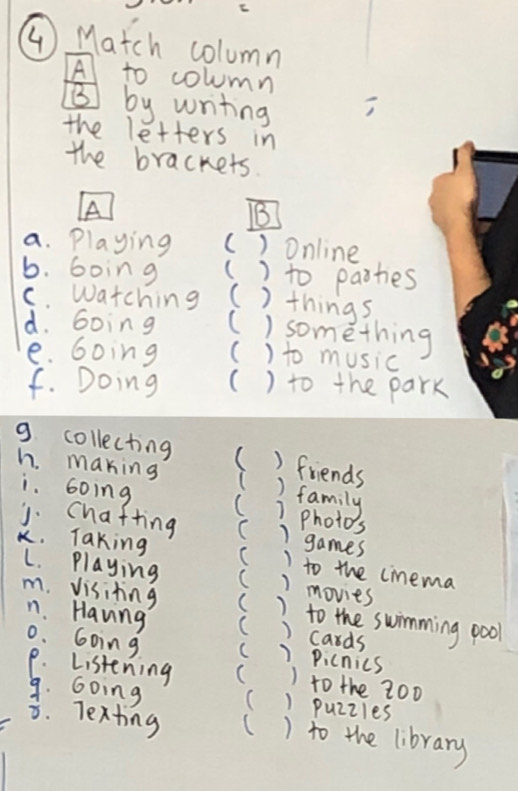 4 Match column
A to column
B by writing
the letters in
the brackets.
A B
a. Playing ( ) Online
b. Going ( ) to parties
c. Watching ( ) things
d. Going ( ) something
e. Going ( ) to music
f. Doing ( ) to the park
g collecting ( ) friends
h. making ( ) family
i. Going ( ) Photos
j. Chatting ( ) games
k. Taking ( ) to the cinema
l. Playing ( ) movies
m. Visiting ( ) to the swimming pool
n. Having ( ) Cards
o. Going ( ) Picnics
p. Listening ( ) to the zoo
q. Going ( ) Puzzles
r. Texting ( ) to the library